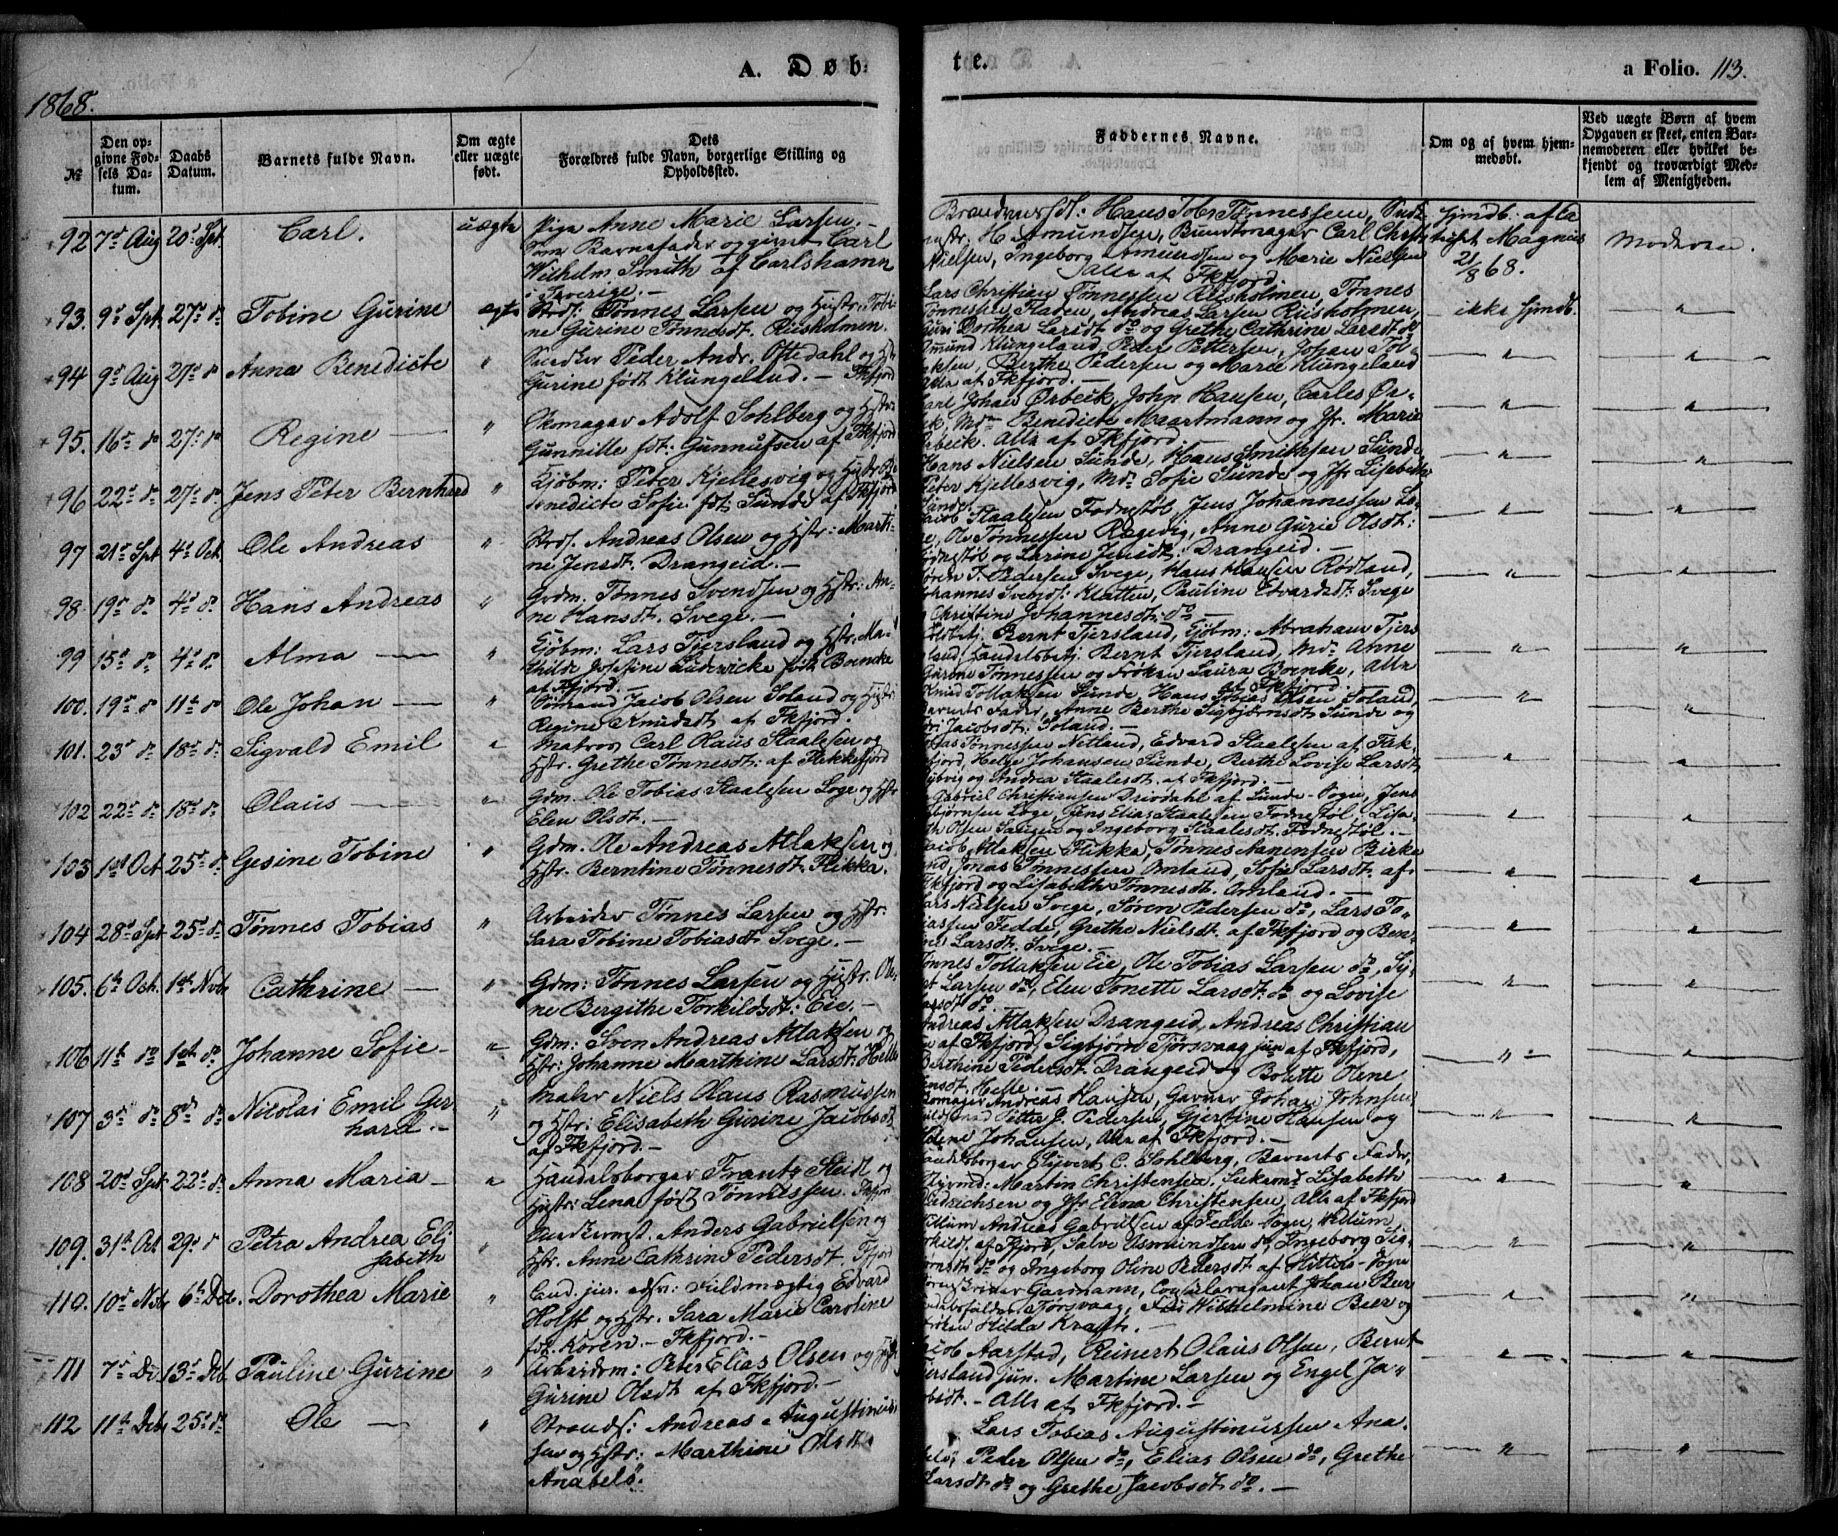 A. Døb-
te.
a Folio. 113.
1868.
№
Den op-
givne Fød-
sels Da-
tum.
Daabs
Datum.
Barnets fulde Navn.
Om ægte
eller uægte
født.
Dets
Forældres fulde Navn, borgerlige Stilling og
Opholdssted.
Faddernes Navne.
Om og af hvem hjem-
medøbt.
Ved uægte Børn af hvem
Opgaven er skeet, enten Bar-
nemoderen eller hvilket be-
kjendt og troværdigt Med-
lem af Menigheden.
92 7d Aug 20d Spt Carl. uægte
Pige Anne Marie Larsen. -
som Barnefader opgivet Carl
Wilhelm Smith af Carlshamn
i Sverige. -
Hans Tobs Tønnessen,
H. Amundsen, Bundtmager Carl Christ
Nielsen, Ingeborg Amundsen og Marie Nielsen
Alle af Fkfjord.
Hjmdb: af
Magnus
21/8 68.
Moderen.
93. 9d Spt. 27d do Tobine Gurine ægte
Strds: Tønnes Larsen og Hustr: Tobi-
ne Gurine Tønnesdt. Riisholmen.
Lars Christian Tønnessen Riisholmen, Tønnes
Tønnessen Fladen, Andreas Larsen Riisholmen,
Guri Dorthea Larsdt do og Grethe Cathrine Larsdt do
ikke hjmdb. — " —
94 9d Aug 27d do Anna Benedicte "
Peder Andr. Oftedahl og H-
Gurine født Klungeland. - Fkfjord
Amund Klungeland, Peder Pettersen, Johan Tol-
aksen, Berthe Pedersen og Marie Klungeland
Alle af Fkfjord. -
95. 16d do 27d do Regine — "
Skomager Adolf Sohlberg og Hustr:
Gunnille fdt. Gunnufsen af Fkfjord
Johan Ørbeck, John Hansen, Carles Ør-
beck, Md. Benedicte Maartmann og Jfr. Marie
Ørbeck. Alle af Fkfjord. -
96 22d do 27d do Jens Peter Bernhard "
Kjøbm: Peter Kjellesvig og Hustr Be-
nedicte Sofie fdt: Sunde af Fkfjord
Hans Nielsen Sunde, Hans Smithsen Sunde
Peter Kjellesvig, Md. Sofie Sunde og Jfr Lisebeth
Sunde.
97 21d Spt 4d Oct Ole Andreas "
Strds. Andreas Olsen og Hstr: Marti-
ne Jensdt. Drangeid. -
Jacob Staalesen Fodnestøl, Jens Johannessen Lo-
ge, Ole Tønnessen Rægevig, Anne Gurie Olsdt:
Fodnestøl og Larine Jensdt: Drangeid. -
98. 19d do 4d do Hans Andreas "
Grdm. Tønnes Svendsen og Hstr: An-
ne Hansdt. Svege. -
Søren T. Pedersen Svege, Hans Hansen Rødland,
Johannes Klatten, Pauline Edvardsdt. Svege
og Christine Johannesdt: do
99 15d do 4d do Alma — "
Kjøbm: Lars Tjersland og Hstr. Ma-
thilde Josefine Ludevicke født Brincke
af Fkfjord. -
Bernt Tjersland, Kjøbm: Abraham Tjers
land, Handelsbetj. Bernt Tjersland, Md. Anne
Gurine Tønnessen og Frøken Laura Brinke, Alle
af Fkfjord. -
100. 19d do 11te do Ole Johan — "
Sømand Jacob Olsen Soland og Hustr
Regine Knudsdt af Fkfjord.
Knud Tollaksen Sunde, Hans Tobias Olsen Soland,
Barnets Fader, Anne Berthe Sigbjørnsdt Sunde og
Jacobsdt: Soland. -
101. 23d do 18d do Sigvald Emil "
Matros Carl Olaus Staalesen og
Hstr. Grethe Tønnesdt: af Flekkefjord
Tønnessen Nitland, Edvard Staalesen af Flek-
kefjord, Helge Johansen Sunde, Berthe Lovise Larsdt
og Andrea Staalesdt. af Fkfjord. -
102 22d do 18d do Olaus — "
Gdm. Ole Tobias Staalesen Loge og Hstr
Elen Olsdt. -
Gabriel Christiansen Driodahl af Sunde-Sogn, Jens
Loge, Jens Elias Staalesen Fodnestøl, Lisa-
beth Olsen og Ingeborg Staalesdt. Fodnestøl. -
103 1ste Oct 25d do Gesine Tobine "
Gdm. Ole Andreas Atlaksen og
Hstr. Berntine Tønnesdt. Flikka.
Jacob Atlaksen Flikka, Tønnes Aanensen Birke
land, Jonas Tønnessen Omland, Sofie Larsdt. af
Fkfjord og Lisabeth Tønnesdt. Omland. -
104 28d Spt 25d do Tønnes Tobias "
Arbeider Tønnes Larsen og Hstr:
Sara Tobine Tobiasdt. Svege. -
Lars Nielsen Svege, Søren Pedersen do, Lars To-
biassen Fedde, Grethe Nielsdt. af Fkfjord og Ben-
Larsdt. Svege. -
105. 6te Oct. 1ste Nvbr Cathrine — "
Gdm: Tønnes Larsen og Hustr. Ol-
ne Bergithe Torkildsdt: Eie. -
Tønnes Tollaksen Eie, Ole Tobias Larsen do, Sy-
vert Larsen do, Elen Tonette Larsdt. do og Lovise
Larsdt do
106 11te do 1ste do Johanne Sofie - "
Gdm: Sven Andreas Atlaksen og
Hstr: Johanne Marthine Larsdt: Helle
Andreas Atlaksen Drangeid, Andreas Christian
af Fkfjord, Sigbjørn Tjørsvaag jun af Fkfjord,
Berthine Pedersdt. Drangeid og Bolette Olene
Jensdt. Helle. -
107 3d do 8de do Nicolai Emil Ger-
hard. - "
Maler Niels Olaus Rasmussen
og Hstr: Elisabeth Gurine Jacobsdt
af Fkfjord. -
Skomager Andreas Hansen, Garver Johan Johnsen
Petter J. Pedersen, Gjertine Hansen og
Johansen, Alle af Fkfjord. -
108 20d Spt 22d do Anna Maria - "
Handelsborger Frantz Steidl og
Hustr: Lena født Tønnessen. Fkfjord
Handelsborger Sijvert C. Sohlberg, Barnets Fader,
Styrmd: Martin Christensen, Lisabeth
Diedrichsen og Jfr Elena Christensen, Alle af Fkfjord
109. 31te Oct 29d do Petra Andrea Eli-
sabeth "
Anders Gabrielsen og
Hstr. Anne Cathrine Pedersdt. Fkfjord
Villum Andreas Gabrielsen af Fedde Sogn, Villum
af Fkfjord, Salve Asmundsen do, Ingeborg Sig-
bjørnsdt do og Ingeborg Oline Pedersdt af Hitterø-Sogn
110. 10d Nvbr 6te Dcbr. Dorothea Marie "
Cand. jur. Fuldmægtig Edvard
Holst og Hstr. Sara Marie Caroline
fdt. Koren. - Fkfjord. -
Garmann, Consul Johan Beer
Tjørsvaag, Fru Wilhelmine Beer og
Frøken Hilda Kraft. -
111 7d Dc 13d Dcb. Pauline Gurine "
Arbeidsm: Peter Elias Olsen og Hustr
Gurine Olsdt af Fkfjord. -
Jacob Aarstad, Reinert Olaus Olsen, Bernt
Tjersland jun. Martine Larsen og Engel Ja-
cobsdt. - Alle af Fkfjord. -
112 11te Dcb 25d do Ole — "
Strands: Andreas Augustinus
sen og Hstr: Marthine Olsdt.
Anabelø.
Lars Tobias Augustinussen Ana-
belø, Peder Olsen do, Elias Olsen do, Grethe
Larsdt do og Grethe Jacobsdt do. -